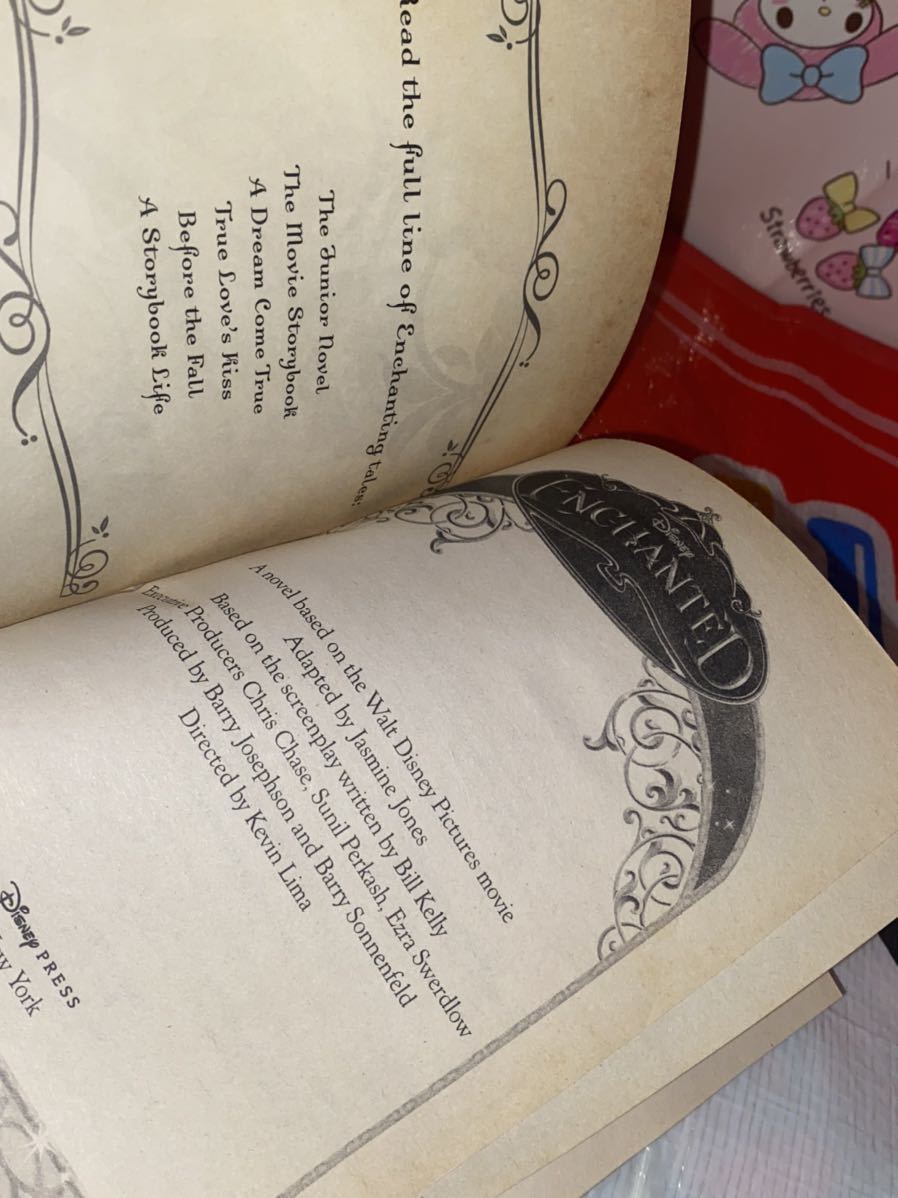 Read the full line of Enchanting tales:
The Junior Novel
The Movie Storybook
A Dream Come True
True Love's Kiss
Before the Fall
A Storybook Life
Disney
ENCHANTED
A novel based on the Walt Disney Pictures movie
Adapted by Jasmine Jones
Based on the screenplay written by Bill Kelly
Executive Producers Chris Chase, Sunil Perkash, Ezra Swerdlow
Produced by Barry Josephson and Barry Sonnenfeld
Directed by Kevin Lima
Disney PRESS
New York
Strawberries